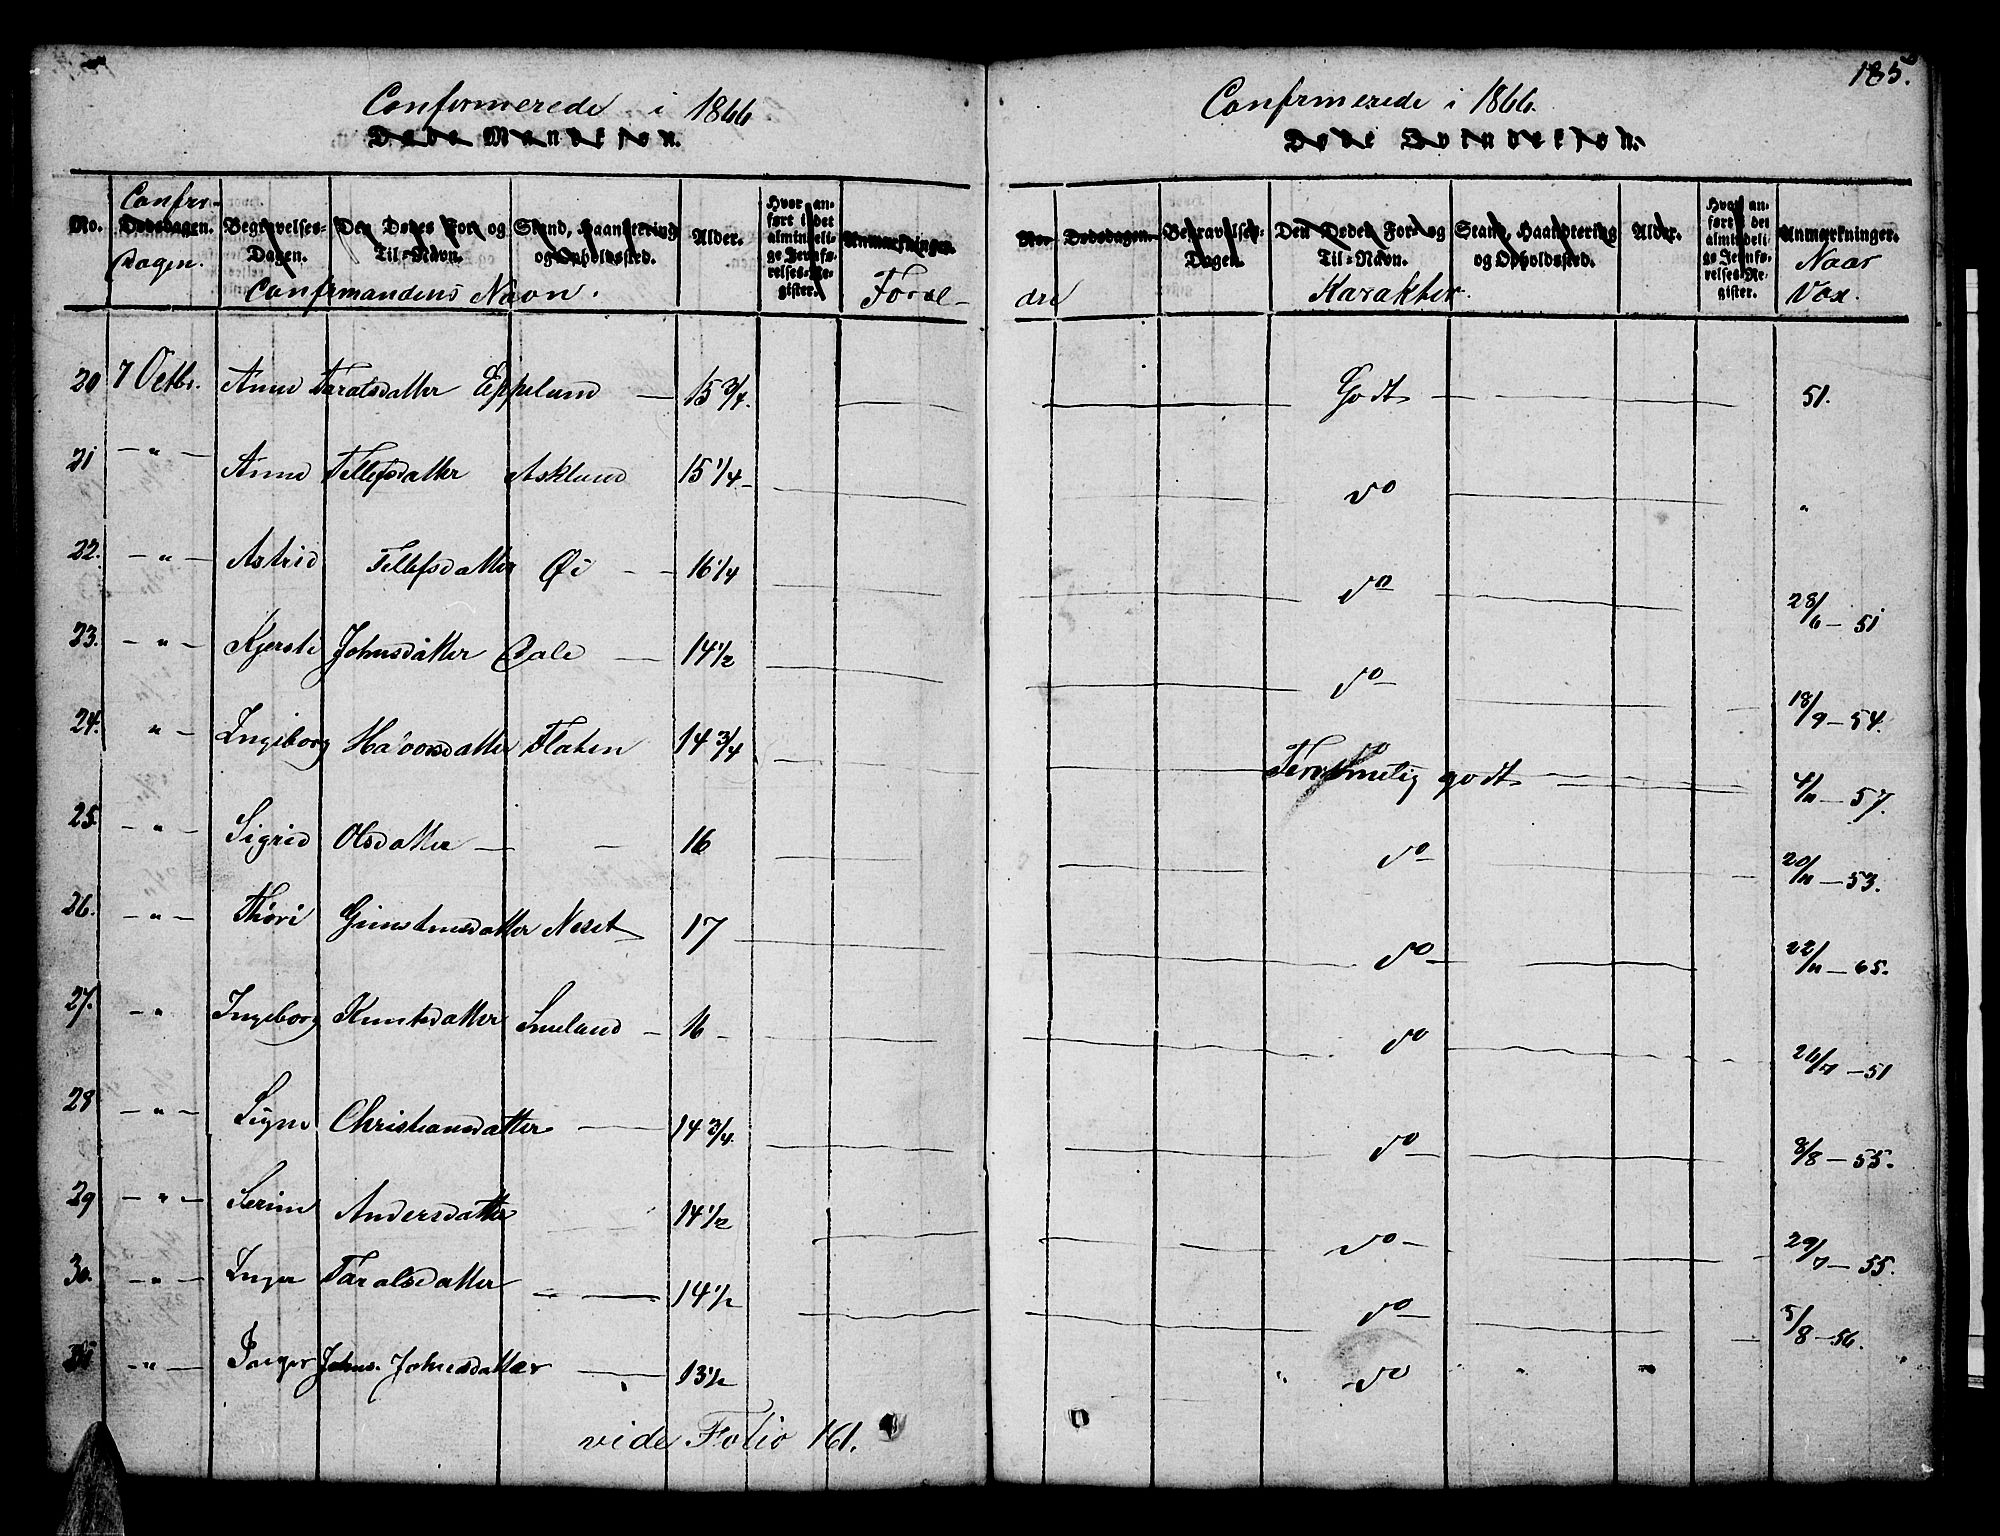 185.
Confirmerede i 1866
Døde Mandkjøn.
Confirmerede i 1866.
Døde Qvindekjøn.
No.
Confr.
Dødsdagen.
Dagen.
Begravelses-
Dagen.
Den Dødes For- og
Til-Navn.
Stand, Haandtering
og Opholdssted.
Confirmandens Navn.
Alder.
Hvor an-
ført i det
almindeli-
ge Jevnfø-
relses-Re-
gister.
Anmærkninger.
Foræl-
No.
Dødsdagen.
dre
Begravelses-
Dagen.
Den Dødes For- og
Til-Navn.
Karakter.
Stand, Haandtering
og Opholdssted.
Alder.
Hvor an-
ført i det
almindeli-
ge Jevnfø-
relses-Re-
gister.
Anmærkninger.
Naar
Vac.
20 7 Octbr. Anne Taralsdatter Eppelund — 15 3/4. Godt — 51.
21 — " — Anne Tellefsdatter Asklund 15 1/4 — do "
22. — " — Astrid Tellefsdatter Øi — 16 1/4 do 28/6 — 51
23. — " — Kjersti Johnsdatter Dale — 14 1/2 do — 18/9 — 54.
24. " — Ingeborg Havorsdatter Flaten 14 3/4 Temmelig godt 4/11 — 57.
25. — " — Sigrid Olsdatter — — 16 do — 20/11 — 53.
26. — " — Thori Gunstensdatter Neset 17 do — 22/11 — 65.
27. — " Ingeborg Knutsdatter Smeland — 16 — do 26/7 — 51
28 — " — Signe Christiansdatter — 14 3/4. do — 8/8 — 55.
29 — " — Serine Andersdatter 14 1/2 do — 29/7 — 55.
30. — " — Inger Taralsdatter — 14 1/2 do — 5/8 — 56.
— " — Inger Johns. Johnsdatter — 13 1/2 " do " "
vide Folio 161.